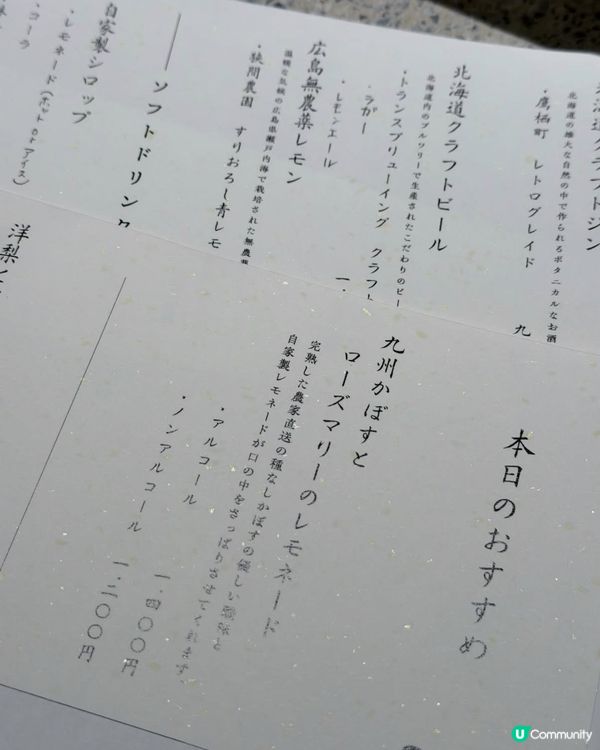 本日のおすすめ
九州かぼすと
ローズマリーのレモネード
完熟した農家直送の種なしかぼすの優しい酸味と
自家製レモネードが口の中をさっぱりさせてくれます。
・アルコール 一.四〇〇円
・ノンアルコール 一.二〇〇円
北海道クラフトジン
北海道の雄大な自然の中で作られるボタニカルなお酒
・鷹栖町 レトログレイド 九
北海道クラフトビール
北海道内のブルワリーで生産されたこだわりのビー
・トランスブリューイング クラフト
・ラガー 一.
・レモンエール
広島無農薬レモン
温暖な気候の広島県瀬戸内海で栽培された無農薬
・狭間農園 すりおろし青レモ
ソフトドリンク
自家製シロップ
・レモネード(ホット or アイス)
・コーラ
洋梨
U Community